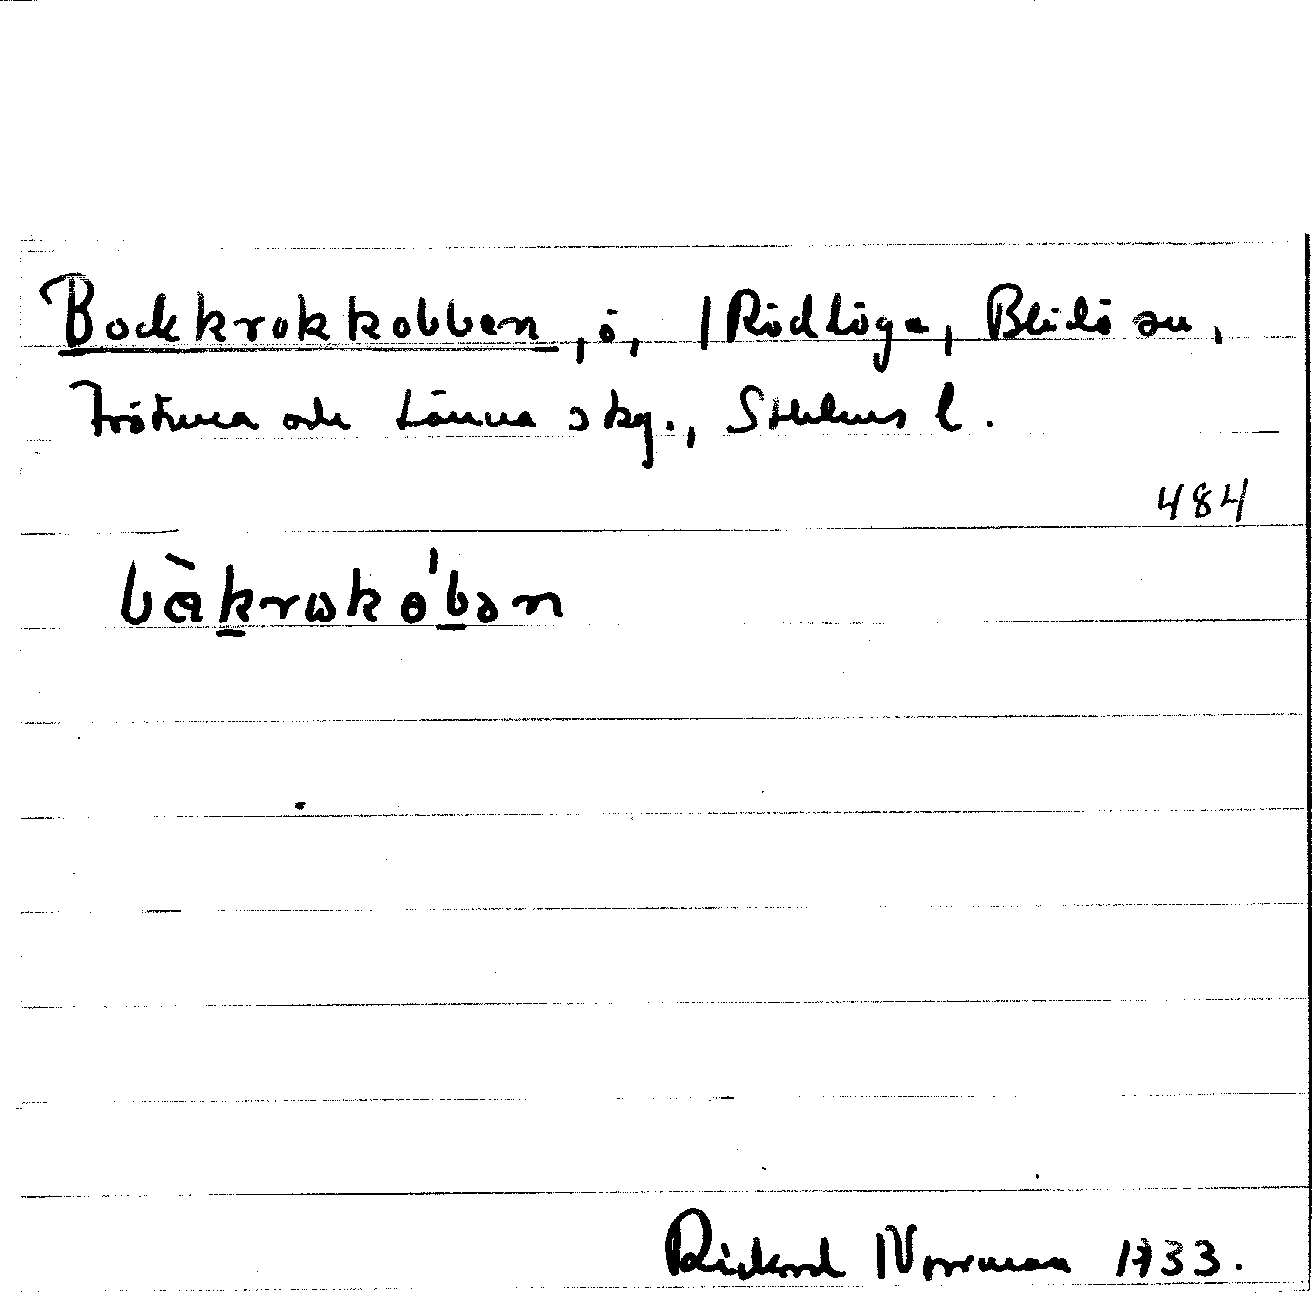 Bockkrokkobben, ö, /Rödlöga, Blidö sn,
Frötuna och Länna skg., Sthlms l.
484
bɑ̀krωkɷ'bən
Rickard Norrman 1933.